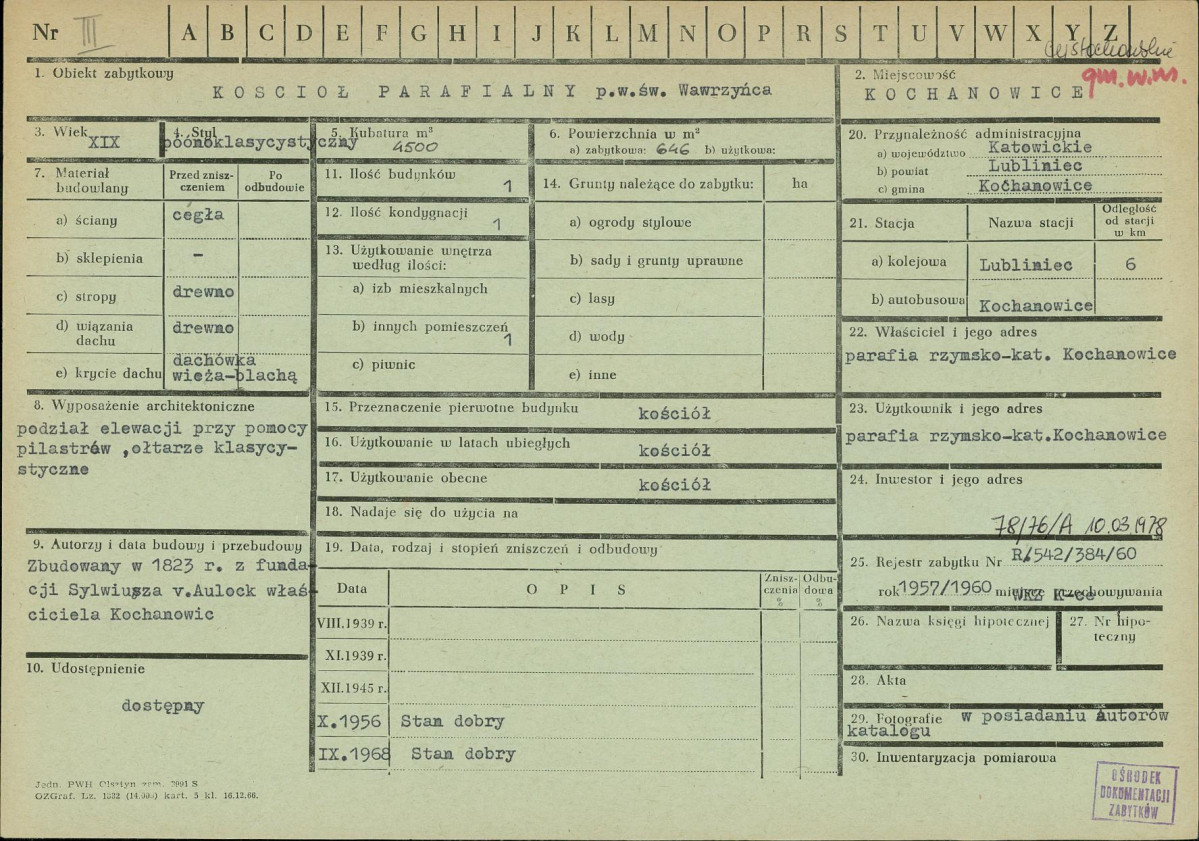 Nr III A B C D E F G H I J K L M N O P R S T U V W X Y Z
gm.w.m.
1. Obiekt zabytkowy
KOSCIOŁ PARAFIALNY p.w.św. Wawrzyńca
2. Miejscowość
KOCHANOWICE
3. Wiek
XIX
4. Styl
póónoklasycystyczny
5. Kubatura m³
4500
6. Powierzchnia w m²
a) zabytkowa: 646 b) użytkowa:
7. Materiał budowlany
Przed zniszczeniem
Po odbudowie
a) ściany cegła
b) sklepienia –
c) stropy drewno
d) wiązania dachu drewno
e) krycie dachu dachówka
wieża-blachą
8. Wyposażenie architektoniczne
podział elewacji przy pomocy
pilastrów ,ołtarze klasycy-
styczne
9. Autorzy i data budowy i przebudowy
Zbudowany w 1823 r. z funda
cji Sylwiusza v.Aulock właś
ciciela Kochanowic
10. Udostępnienie
dostępny
11. Ilość budynków
1
12. Ilość kondygnacji
1
13. Użytkowanie wnętrza
według ilości:
a) izb mieszkalnych
b) innych pomieszczeń
1
c) piwnic
14. Grunty należące do zabytku: ha
a) ogrody stylowe
b) sady i grunty uprawne
c) lasy
d) wody
e) inne
15. Przeznaczenie pierwotne budynku kościół
16. Użytkowanie w latach ubiegłych kościół
17. Użytkowanie obecne kościół
18. Nadaje się do użycia na
19. Data, rodzaj i stopień zniszczeń i odbudowy
Data OPIS Zniszczenia % Odbudowa %
VIII.1939 r.
XI.1939 r.
XII.1945 r.
X.1956 Stan dobry
IX.1968 Stan dobry
20. Przynależność administracyjna
a) województwo Katowickie
b) powiat Lubliniec
c) gmina Kochanowice
21. Stacja Nazwa stacji Odległość od stacji w km
a) kolejowa Lubliniec 6
b) autobusowa Kochanowice
22. Właściciel i jego adres
parafia rzymsko-kat. Kochanowice
23. Użytkownik i jego adres
parafia rzymsko-kat.Kochanowice
24. Inwestor i jego adres
78/76/A 10.03.1978
25. Rejestr zabytku Nr R/542/384/60
rok 1957/1960 miejsce przechowywania
WKZ K-ce
26. Nazwa księgi hipotecznej
27. Nr hipo-
teczny
28. Akta
29. Fotografie w posiadaniu Autorów
katalogu
30. Inwentaryzacja pomiarowa
OŚRODEK
DOKUMENTACJI
ZABYTKÓW
Jedn. PWH Olsztyn zam. 7991 S
OZGraf. Lz. 1332 (14.000) kart. 5 kl. 16.12.66.